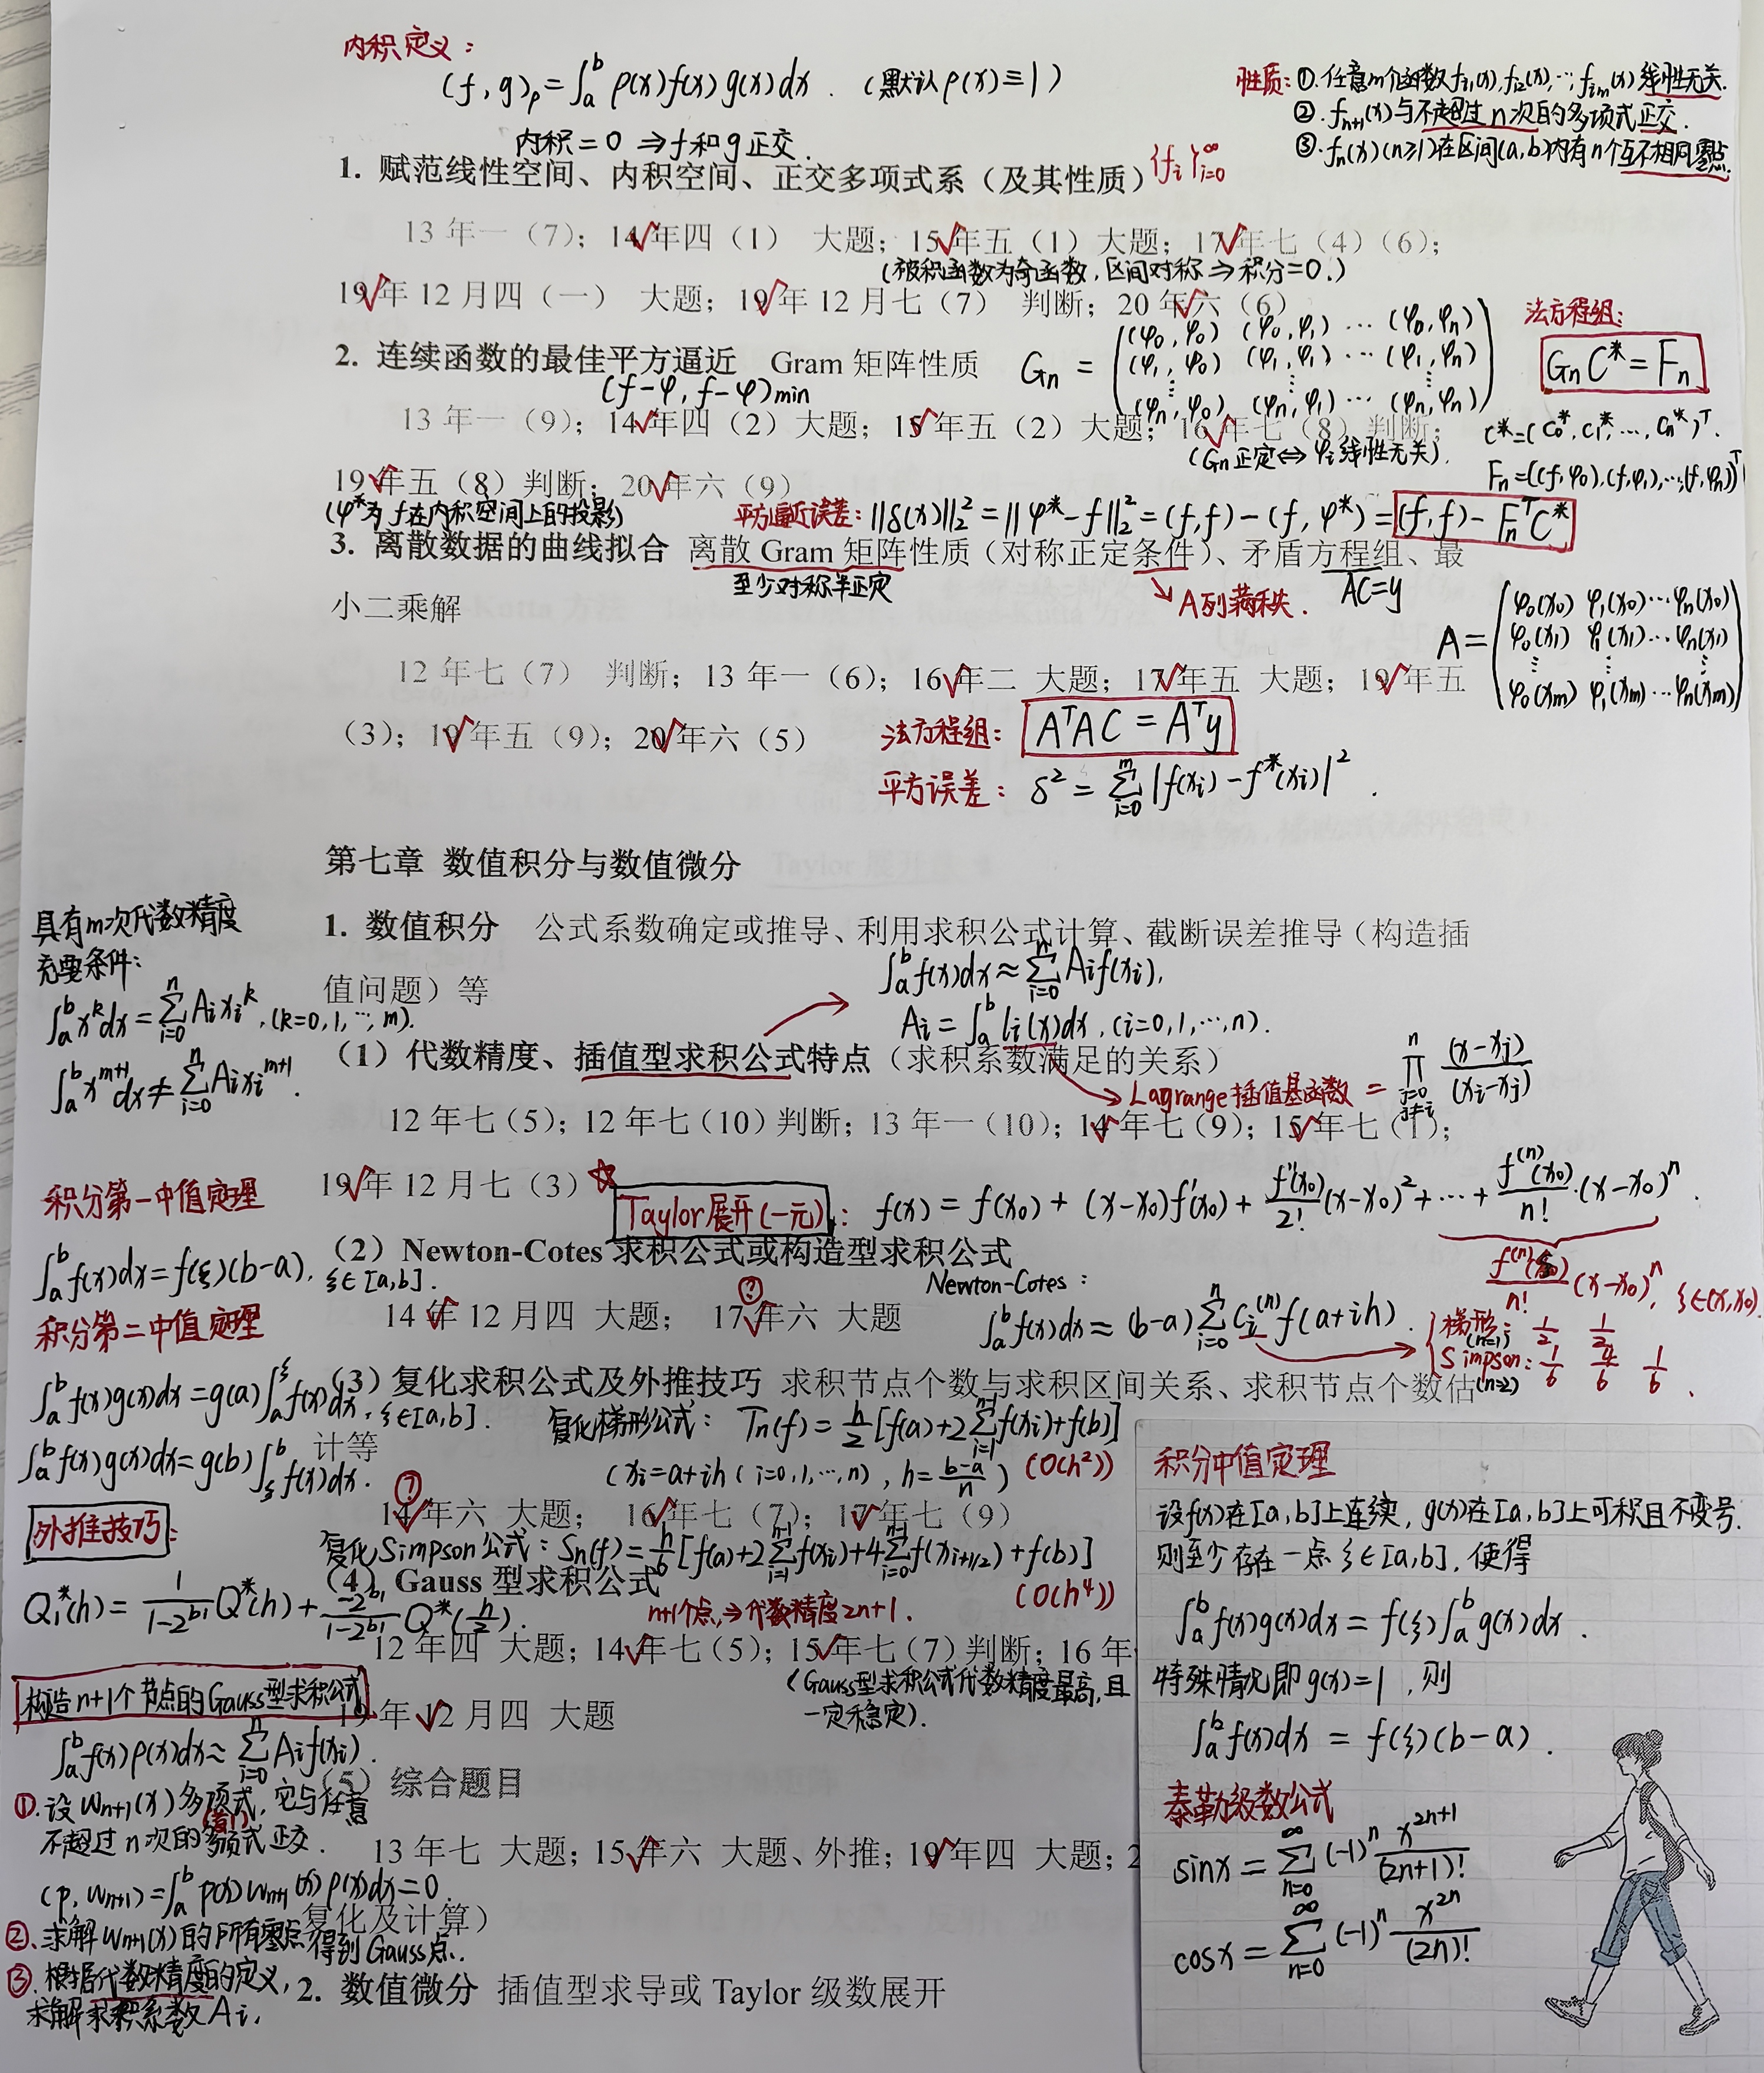 内积定义：
(f,g)ρ=∫_a^b ρ(x)f(x)g(x)dx.（默认ρ(x)≡1）
内积=0 ⇒f和g正交.
性质：①.任意m个函数f_{i1}(x),f_{i2}(x),…,f_{im}(x)线性无关.
②.f_{n+1}(x)与不超过n次的多项式正交.
③.f_n(x)(n≥1)在区间(a,b)内有n个互不相同零点.
1. 赋范线性空间、内积空间、正交多项式系（及其性质）{f_i}_{i=0}^∞
13年一（7）；14√年四（1） 大题；15√年五（1）大题；17√年七（4）（6）；
（被积函数为奇函数,区间对称⇒积分=0.）
19√年12月四（一） 大题；19√年12月七（7） 判断；20年√六（6）
2. 连续函数的最佳平方逼近 Gram 矩阵性质
(f-φ, f-φ)min
Gn = ((φ0,φ0) (φ0,φ1) … (φ0,φn)
(φ1,φ0) (φ1,φ1) … (φ1,φn)
⋮ ⋮ ⋮
(φn,φ0) (φn,φ1) … (φn,φn))
法方程组：
GnC*=Fn
C*=(C0*,C1*,…,Cn*)^T.
Fn=((f,φ0),(f,φ1),…,(f,φn))^T
13年一（9）；14√年四（2）大题；15√年五（2）大题；16√年七（8）判断；
（Gn正定⇔φi线性无关）.
19√年五（8）判断；20√年六（9）
（φ*为f在内积空间上的投影）
平方逼近误差：||δ(x)||_2^2=||φ*-f||_2^2=(f,f)-(f,φ*)=(f,f)-Fn^T C*
3. 离散数据的曲线拟合 离散 Gram 矩阵性质（对称正定条件）、矛盾方程组、最
至少对称半正定
A列满秩.
AC=y
小二乘解
A=(φ0(x0) φ1(x0)…φn(x0)
φ0(x1) φ1(x1)…φn(x1)
⋮ ⋮ ⋮
φ0(xm) φ1(xm)…φn(xm))
12年七（7） 判断；13年一（6）；16√年二 大题；17√年五 大题；19√年五
（3）；19√年五（9）；20√年六（5）
法方程组：A^T AC = A^T y
平方误差：δ²=∑_{i=0}^m |f(xi)-f*(xi)|².
第七章 数值积分与数值微分
1. 数值积分 公式系数确定或推导、利用求积公式计算、截断误差推导（构造插
值问题）等
∫_a^b f(x)dx≈∑_{i=0}^n Ai f(xi),
Ai=∫_a^b li(x)dx,(i=0,1,…,n).
具有m次代数精度
充要条件：
∫_a^b x^k dx=∑_{i=0}^n Ai xi^k,(k=0,1,…,m).
∫_a^b x^{m+1}dx≠∑_{i=0}^n Ai xi^{m+1}.
（1）代数精度、插值型求积公式特点（求积系数满足的关系）
Lagrange插值基函数=∏_{j=0,j≠i}^n (x-xj)/(xi-xj)
12年七（5）；12年七（10）判断；13年一（10）；14√年七（9）；15√年七（1）；
19√年12月七（3）
☆Taylor展开(一元)：f(x)=f(x0)+(x-x0)f'(x0)+f''(x0)/2!(x-x0)²+…+f^(n)(x0)/n!·(x-x0)^n.
f^(n)(ξ)/n!(x-x0)^n, ξ∈(x,x0).
积分第一中值定理
∫_a^b f(x)dx=f(ξ)(b-a),ξ∈[a,b].
（2）Newton-Cotes 求积公式或构造型求积公式
14√年12月四 大题；17√年六 大题
?
Newton-Cotes：
∫_a^b f(x)dx≈(b-a)∑_{i=0}^n Ci^(n) f(a+ih).
梯形：(n=1) 1/2 1/2
Simpson：(n=2) 1/6 4/6 1/6.
积分第二中值定理
∫_a^b f(x)g(x)dx=g(a)∫_a^ξ f(x)dx,ξ∈[a,b].
∫_a^b f(x)g(x)dx=g(b)∫_ξ^b f(x)dx.
（3）复化求积公式及外推技巧 求积节点个数与求积区间关系、求积节点个数估
计等
复化梯形公式：Tn(f)=h/2[f(a)+2∑_{i=1}^{n-1}f(xi)+f(b)]
(xi=a+ih(i=0,1,…,n),h=(b-a)/n) (O(h²))
?
14√年六 大题；16√年七（7）；17√年七（9）
复化Simpson公式：Sn(f)=h/6[f(a)+2∑_{i=1}^{n-1}f(xi)+4∑_{i=0}^{n-1}f(x_{i+1/2})+f(b)]
(O(h⁴))
外推技巧：
Q1*(h)=1/(1-2^{b1})Q*(h)+(-2^{b1})/(1-2^{b1})Q*(h/2).
（4）Gauss 型求积公式
n+1个点,⇒代数精度2n+1.
12年四 大题；14√年七（5）；15√年七（7）判断；16年
（Gauss型求积公式代数精度最高,且
一定稳定）.
19年√12月四 大题
构造n+1个节点的Gauss型求积公式
∫_a^b f(x)ρ(x)dx≈∑_{i=0}^n Ai f(xi).
①.设w_{n+1}(x)多项式,它与任意
(首1)
不超过n次的多项式正交.
(p,w_{n+1})=∫_a^b p(x)w_{n+1}(x)ρ(x)dx=0.
②.求解w_{n+1}(x)的所有零点得到Gauss点.
③.根据代数精度的定义,
求解求积系数Ai.
（5）综合题目
13年七 大题；15√年六 大题、外推；19√年四 大题；2
复化及计算）
2. 数值微分 插值型求导或 Taylor 级数展开
积分中值定理
设f(x)在[a,b]上连续,g(x)在[a,b]上可积且不变号.
则至少存在一点ξ∈[a,b],使得
∫_a^b f(x)g(x)dx=f(ξ)∫_a^b g(x)dx.
特殊情况即g(x)=1,则
∫_a^b f(x)dx=f(ξ)(b-a).
泰勒级数公式
sinx=∑_{n=0}^∞(-1)^n x^{2n+1}/(2n+1)!
cosx=∑_{n=0}^∞(-1)^n x^{2n}/(2n)!